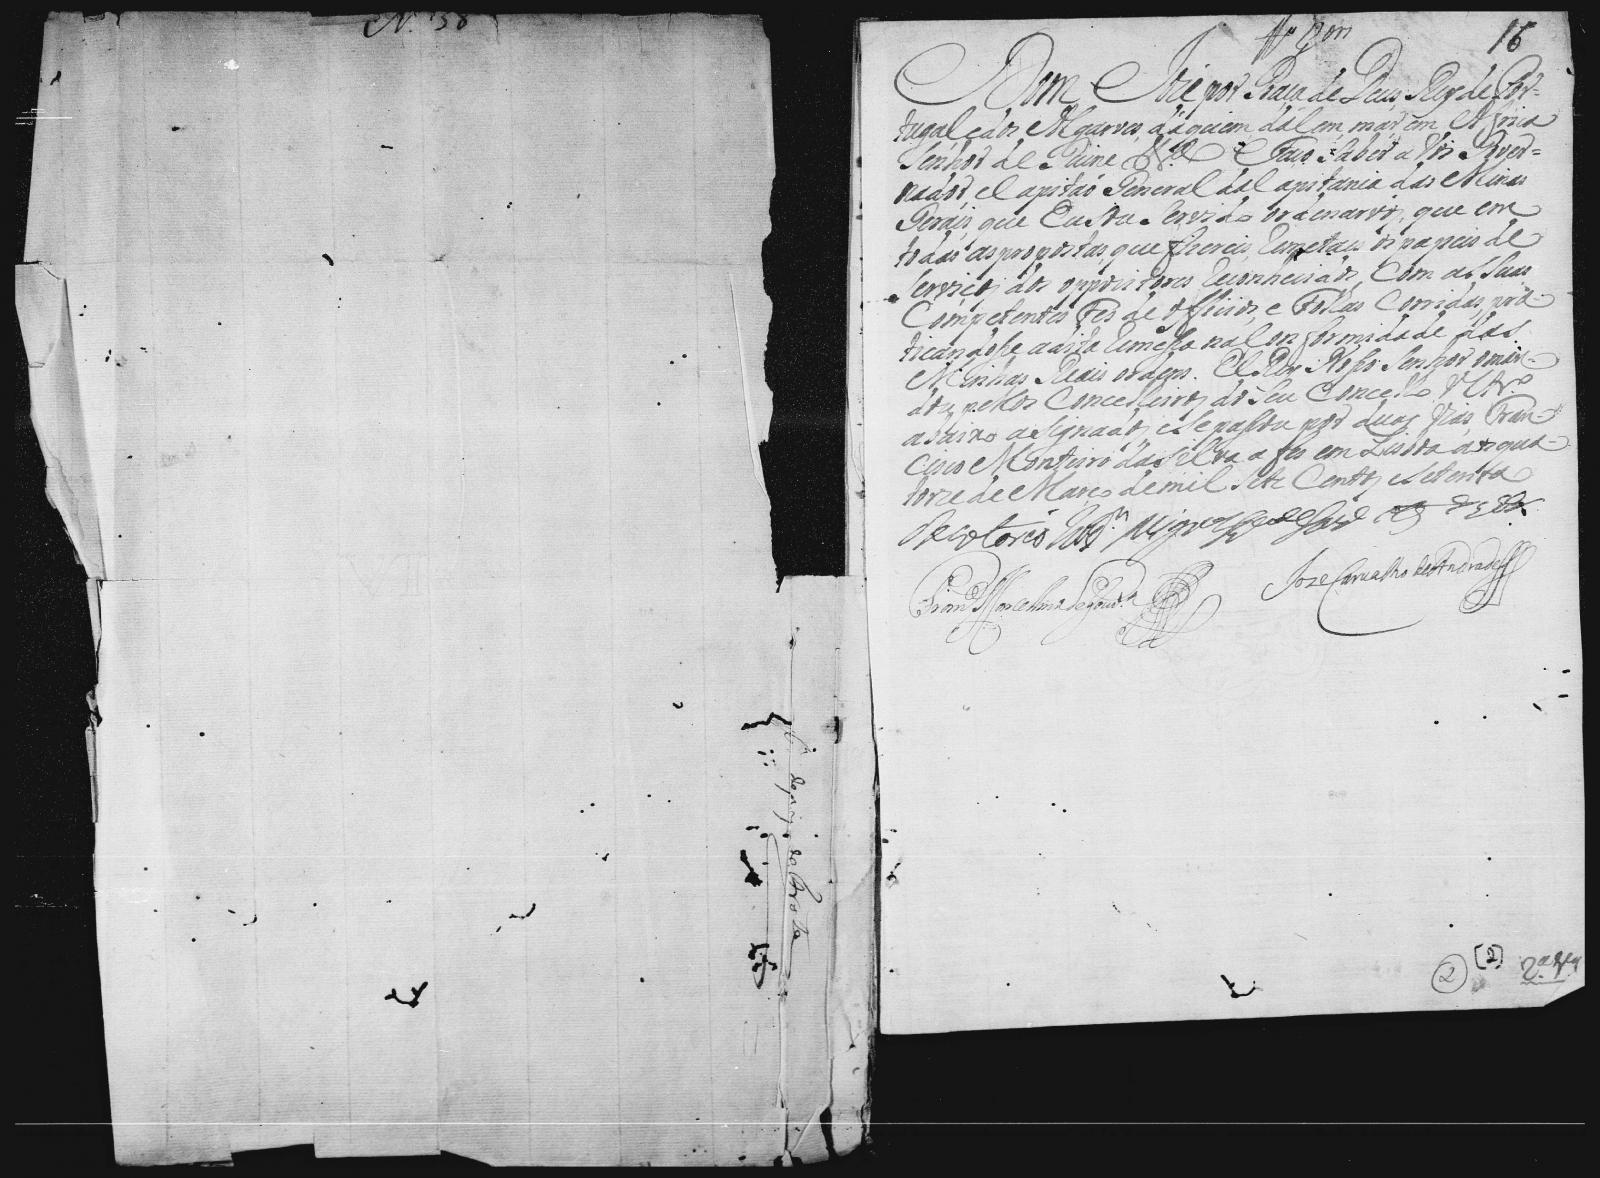 N. 58
16
Dom Joze por Graça de Deus Rey de Por=
tugal, e dos Algarves, daquem, dalem, mar, em Africa
Senhor de Guine &.ª Faço saber a Vos Gover=
nador, e Capitaõ General da Capitania das Minas
Geraes, que Eu Sou Servido ordenarvos, que em
todas as propostas, que fizereis, remetais os papeis de
Serviços dos oppozitores reconhecidos, Com as Suas
Competentes Fes de officios, e Folhas Corridas, pra-
ticandose a dita remessa na Conformidade das
Minhas Reais ordens. El Rey Nosso Senhor o man-
dou pelos Concelheiros do Seu Concelho Ultr.º
abaixo asignados, e Se passou por duas vias. Fran-
cisco Monteiro da Silva a fes em Lisboa aos qua-
torze de Março de mil Sete Centos e Setenta
Joze Carvalho de Andrade
(2) [2] 2.ª